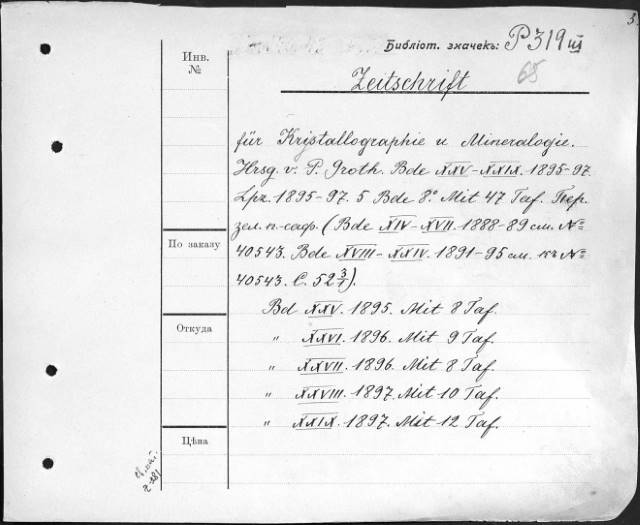 Библіот. значекъ: P 319 III
65
Инв.
№
Zeitschrift
für Krystallographie u Mineralogie.
Hrsg. v. P. Groth. Bde XXV-XXIX. 1895-97.
Lpz. 1895-97. 5 Bde 8.° Mit 47 Taf. Пер.
зел. п.-саф. (Bde XIV-XVII. 1888-89 см. №
По заказу
40543. Bde XVIII-XXIV. 1891-95 см. къ №
40543. С. 52 3/1).
Bd XXV. 1895. Mit 8 Taf.
Откуда
" XXVI. 1896. Mit 9 Taf.
" XXVII. 1896. Mit 8 Taf.
" XXVIII. 1897. Mit 10 Taf.
" XXIX. 1897. Mit 12 Taf.
Цѣна